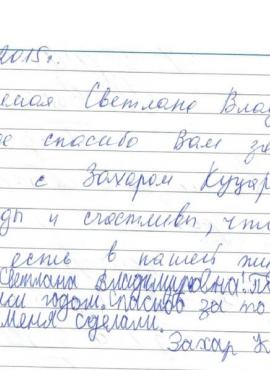 2015г.
емая Светлана Влад
ое спасибо Вам за
с Захаром Куцар
ды и счастливы, что
есть в нашей жи
Светлана Владимировна!
ним годом. Спасибо за то
меня сделали.
Захар К